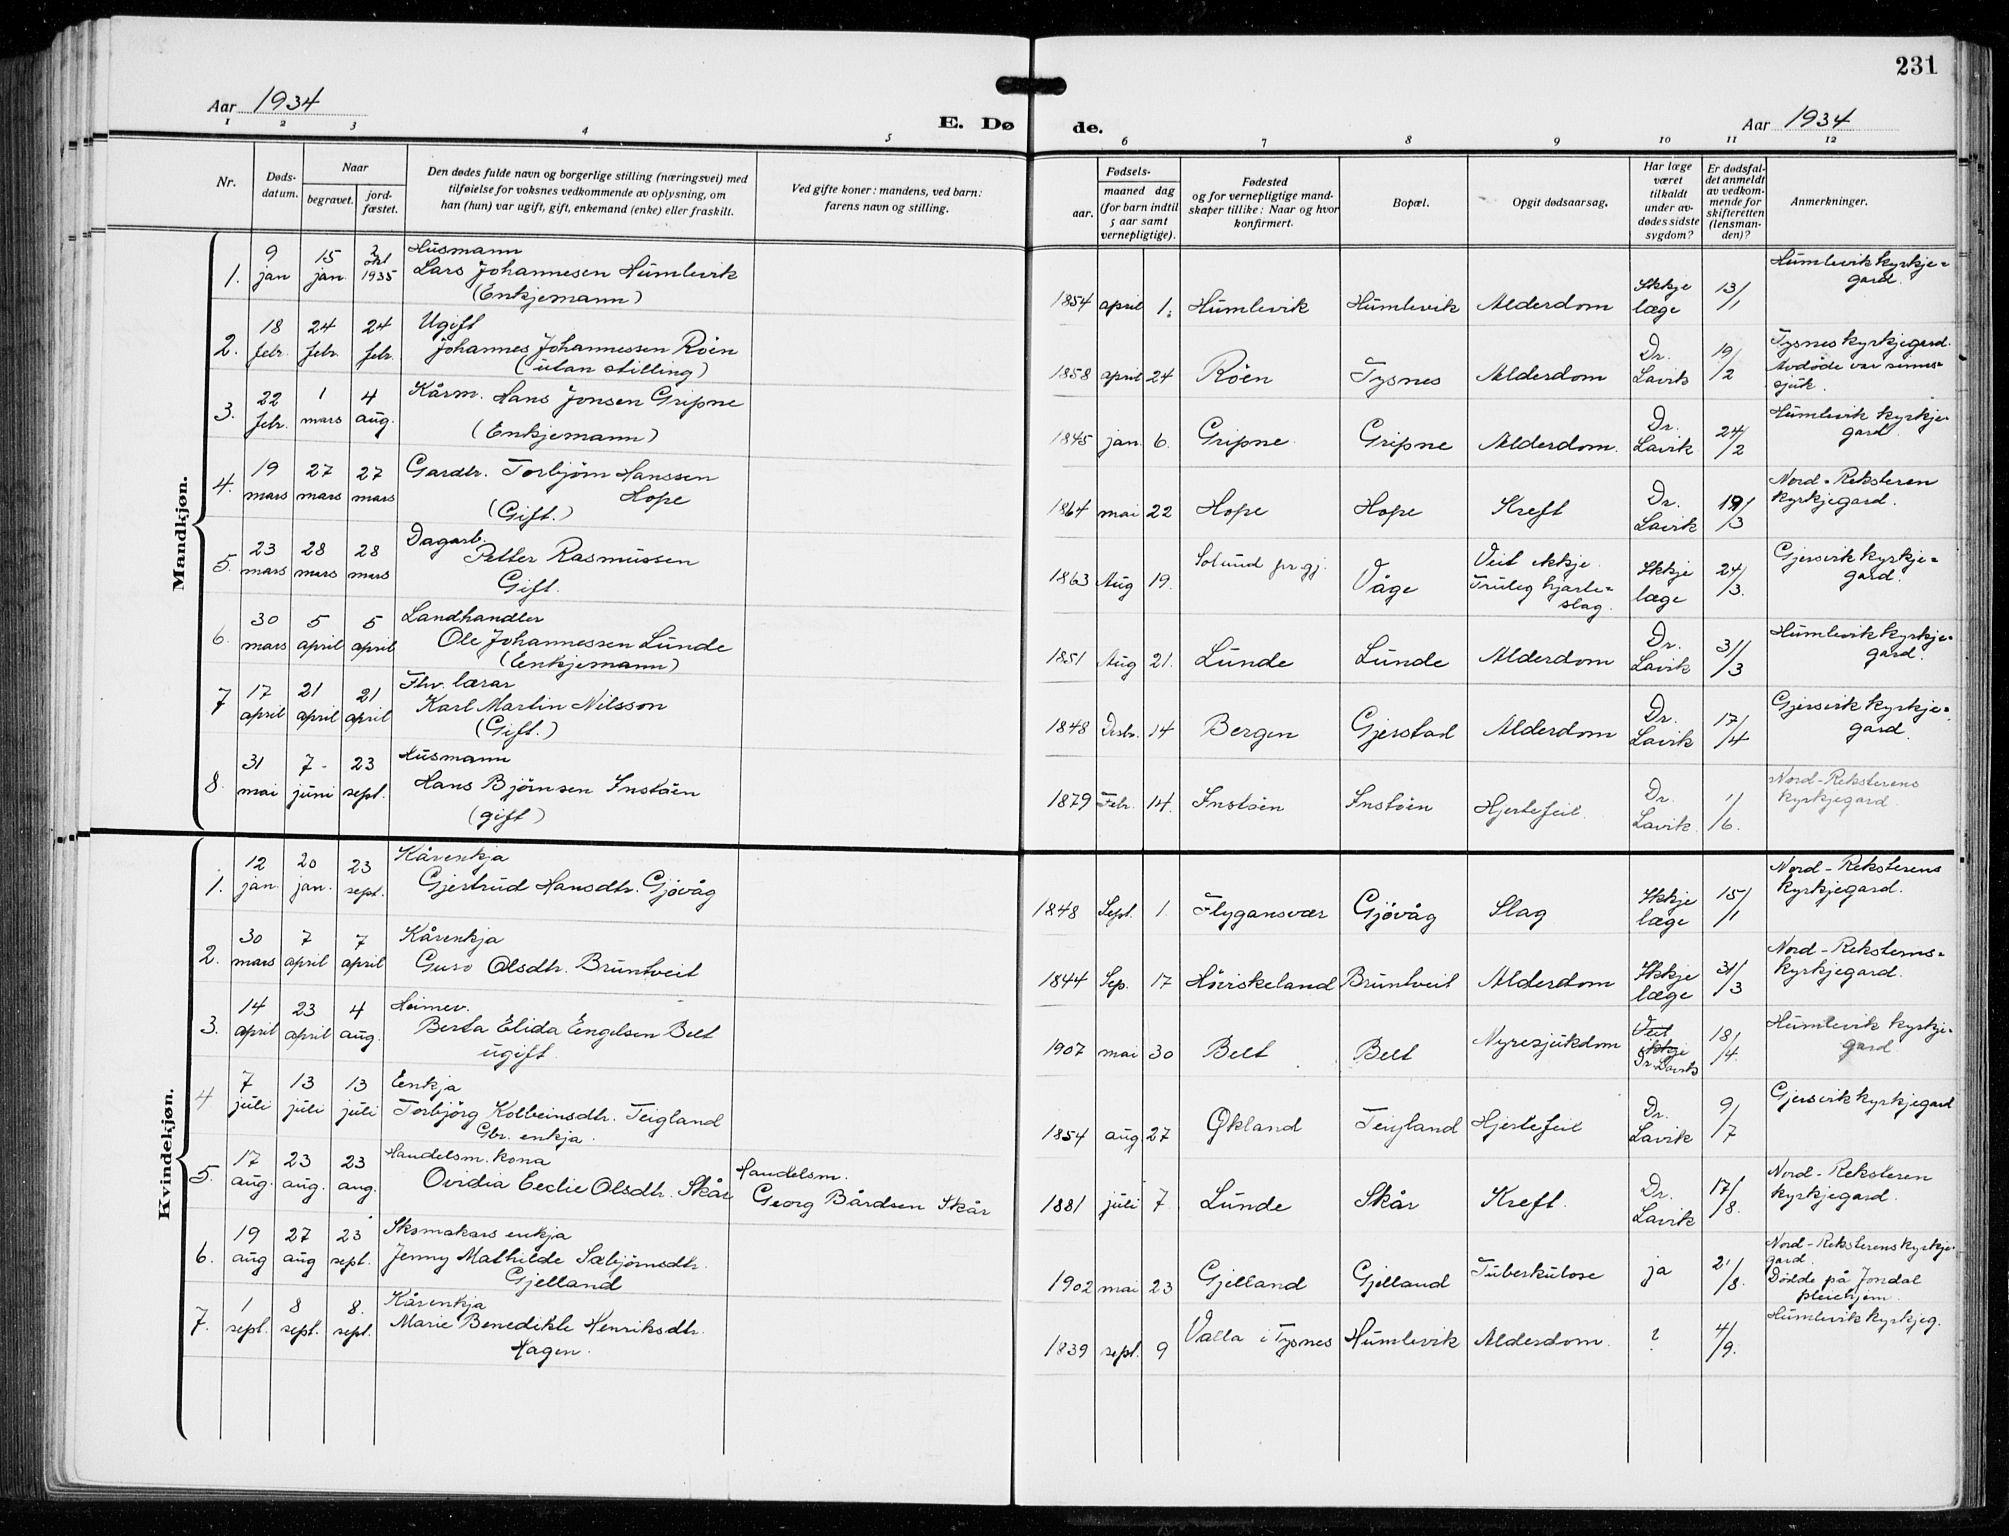 231
Aar 1934
E. Dø
de.
Aar 1934
1 2 3 4 5 6 7 8 9 10 11 12
Nr.
Døds-
datum.
Naar
begravet.
jord-
fæstet.
Den dødes fulde navn og borgerlige stilling (næringsvei) med
tilføielse for voksnes vedkommende av oplysning, om
han (hun) var ugift, gift, enkemand (enke) eller fraskilt.
Ved gifte koner: mandens, ved barn:
farens navn og stilling.
Fødsels-
aar.
maaned dag
(for barn indtil
5 aar samt
vernepligtige).
Fødested
og for vernepligtige mand-
skaper tillike: Naar og hvor
konfirmert.
Bopæl.
Opgit dødsaarsag.
Har læge
været
tilkaldt
under av-
dødes sidste
sygdom?
Er dødsfal-
det anmeldt
av vedkom-
mende for
skifteretten
(lensman-
den)?
Anmerkninger.
Mandkjøn.
1. 9 jan 15 jan. 1935
Husmann
Lars Johannesen Humlevik
(Enkjemann)
1854 april 1. Humlevik Humlevik Alderdom Ikkje læge 13/1
Humlevik kyrkje=
gard.
2. 18 febr. 24 febr. 24 febr.
Ugift
Johannes Johannessen Röen
(utan stilling)
1858 april 24 Röen Tysnes Alderdom Dr. Lavik 19/2
Tysnes kyrkjegard.
Avdöde var sinns=
sjuk.
3. 22 febr. 1 mars 4 aug.
Kårm. Hans Jonsen Gripne
(Enkjemann)
1845 jan. 6. Gripne Gripne Alderdom. Dr. Lavik 24/2
Humlevik kyrkje-
gard.
4. 19 mars 27 mars 27 mars
Gardbr. Torbjörn Hanssen
Hope
(Gift.)
1864 mai 22 Hope Hope Kreft Dr. Lavik 19/3
Nord-Reksteren
kyrkjegard.
5. 23 mars 28 mars 28 mars
Dagarb.
Petter Rasmussen
Gift.
1863 Aug 19. Solund pr.gj. Våge
Veit ikkje.
Truleg hjarte=
slag.
Ikkje læge 24/3.
Gjersvik kyrkje=
gard.
6. 30 mars 5 april 5 april
Landhandler
Ole Johannessen Lunde
(Enkjemann)
1851 Aug 21. Lunde Lunde Alderdom Dr. Lavik 31/3
Humlevik kyrkje=
gard.
7 17 april 21 april 21 april
Fhv. lærar
Karl Martin Nilsson
(Gift.)
1848 Desbr. 14 Bergen Gjerstad Alderdom Dr. Lavik 17/4
Gjersvik kyrkje=
gard.
8. 31 mai 7- juni 23 sept.
Husmann
Hans Björnsen Instöen
(gift)
1879 Febr. 14. Instöen Instöen Hjertefeil. Dr. Lavik. 1/6.
Nord-Reksterens
kyrkjegard.
Kvindekjøn.
1. 12 jan. 20 jan. 23 sept.
Kårenkja
Gjertrud Hansdtr. Gjövåg
1848 Sept. 1. Flygansvær Gjövåg Slag Ikkje læge 15/1
Nord-Reksterens
kyrkjegard.
2. 30 mars 7 april 7 april
Kårenkja
Guro Olsdtr. Bruntveit
1844 Sep. 17 Höviskeland Bruntveit Alderdom Ikkje læge 31/3
Nord-Reksterns=
kyrkjegard.
3. 14 april 23 april 4 aug.
Heimev.
Berta Elida Engelsen Belt
ugift.
1907 mai 30 Belt Belt Nyresjukdom Veit ikkje Dr Lavik 18/4.
Humlevik kyrkje-
gard
4 7 juli 13 juli 13 juli
Eenkja
Torbjörg Kolbeinsdtr. Teigland
Gbr. enkja.
1854 aug 27 Økland Teigland Hjertefeil Dr. Lavik 9/7
Gjersvik kyrkjegard
5. 17 aug. 23 aug. 23 aug.
Handelsm. kona
Ovidia Cecilie Olsdtr. Skår
Handelsm.
Georg Bårdsen Skår
1881 juli 7. Lunde Skår Kreft. Dr. Lavik 17/8.
Nord-Reksteren
kyrkjegard.
6. 19 aug 27 aug 23 sept.
Skomakars enkja
Jenny Mathilde Sæbjörnsdtr.
Gjelland
1902 mai 23 Gjelland Gjelland Tuberkulose ja 21/8.
Nord-Reksterens kyrkje-
gard.
Dödde på Jondal
pleiehjem.
7. 1 sept. 8 sept. 8. sept.
Kårenkja
Marie Benedikte Henriksdtr.
Hagen.
1839 sept. 9 Valla i Tysnes Humlevik Alderdom. ? 4/9.
Humlevik kyrkjeg.